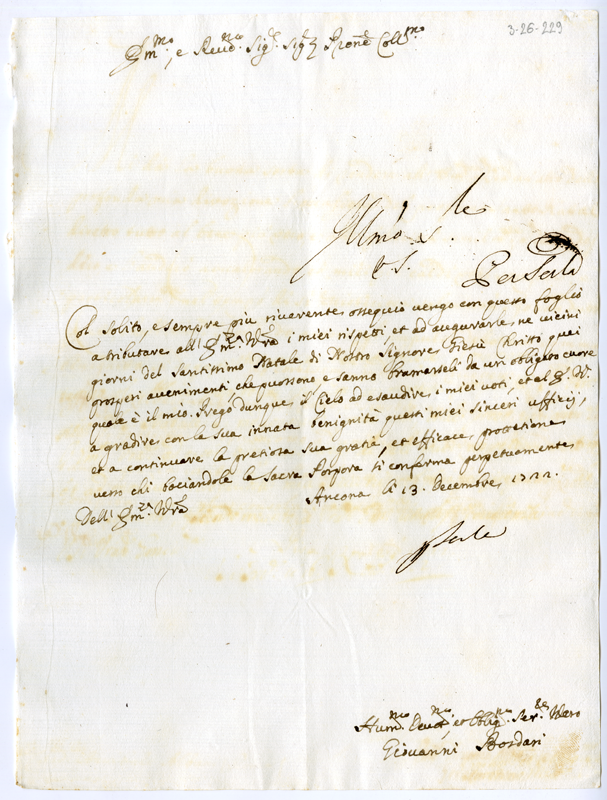 3-26-229
Em.mo, e Reud.mo Sig.r Sig.r Prone Coll.mo
Col solito, e sempre più riverente ossequio vengo con questo foglio
a tributare all'Em.za Vra i miei rispetti, et ad augurarle, ne vicini
giorni del Santissimo Natale di Nostro Signore Giesù Christo quei
prosperi avenimenti, che possono e sanno bramarseli da un obligato cuore
quale è il mio. Prego dunque il Cielo ad esaudire i miei voti, et al Em. V.
a gradire con la sua innata benignità questi miei sinceri ufficij,
et a continuare la pretiosa sua gratia, et efficace protetione
verso chi baciandole la Sacra Porpora si conferma perpetuamente
Dell'Em.za Vra Ancona li 13. Decembre 1722.
Hum.mo Deuot.mo et Oblig.mo Ser.re Vero
Giovanni Bosdari